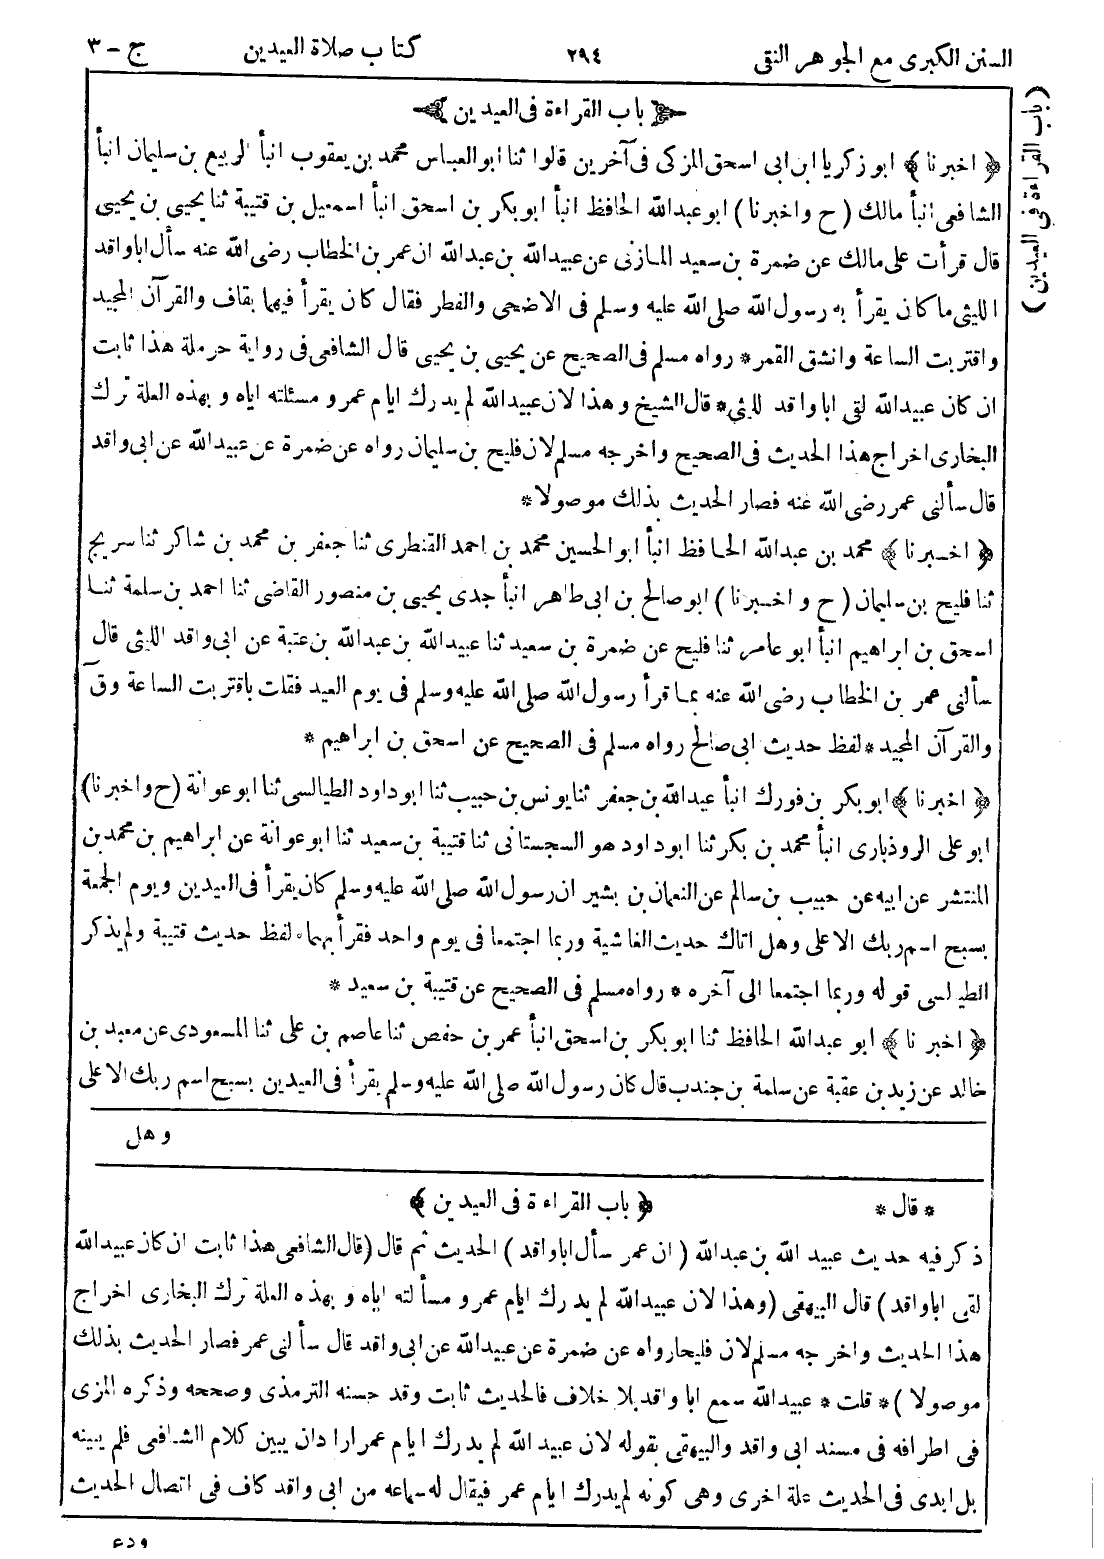 السنن الكبرى مع الجوهر النقى ٢٩٤ كتاب صلاة العيدين ج - ٣
(باب القراءة فى العيدين)
باب القراءة فى العيدين
﴿ اخبرنا ﴾ ابو زكريا ابن ابى اسحق المزكى فى آخرين قالوا ثنا ابو العباس محمد بن يعقوب انبأ الربيع بن سليمان انبأ
الشافعى انبأ مالك ( ح واخبرنا ) ابو عبد الله الحافظ انبأ ابو بكر بن اسحق انبأ اسمعيل بن قتيبة ثنا يحيى بن يحيى
قال قرأت على مالك عن ضمرة بن سعيد المازنى عن عبيد الله بن عبد الله ان عمر بن الخطاب رضى الله عنه سأل ابا واقد
الليثى ما كان يقرأ به رسول الله صلى الله عليه وسلم فى الاضحى والفطر فقال كان يقرأ فيهما بقاف والقرآن المجيد
واقتربت الساعة وانشق القمر * رواه مسلم فى الصحيح عن يحيى بن يحيى قال الشافعى فى رواية حرملة هذا ثابت
ان كان عبيد الله لقى ابا واقد لليثى * قال الشيخ وهذا لان عبيد الله لم يدرك ايام عمر و مسئلته اياه و بهذه العلة ترك
البخارى اخراج هذا الحديث فى الصحيح واخرجه مسلم لان فليح بن سليمان رواه عن ضمرة عن عبيد الله عن ابى واقد
قال سألنى عمر رضى الله عنه فصار الحديث بذلك موصولا *
﴿ اخبرنا ﴾ محمد بن عبد الله الحافظ انبأ ابو الحسين محمد بن احمد القنطرى ثنا جعفر بن محمد بن شاكر ثنا سريج
ثنا فليح بن سليمان ( ح و اخبرنا ) ابو صالح بن ابى طاهر انبأ جدى يحيى بن منصور القاضى ثنا احمد بن سلمة ثنا
اسحق بن ابراهيم انبأ ابو عامر ثنا فليح عن ضمرة بن سعيد ثنا عبيد الله بن عبد الله بن عتبة عن ابى واقد الليثى قال
سألنى عمر بن الخطاب رضى الله عنه بما قرأ رسول الله صلى الله عليه وسلم فى يوم العيد فقلت باقتربت الساعة وق~
والقرآن المجيد * لفظ حديث ابى صالح رواه مسلم فى الصحيح عن اسحق بن ابراهيم *
﴿ اخبرنا ﴾ ابو بكر بن فورك انبأ عبد الله بن جعفر ثنا يونس بن حبيب ثنا ابو داود الطيالسى ثنا ابو عوانة (ح واخبرنا)
ابو على الروذبارى انبأ محمد بن بكر ثنا ابو داود هو السجستانى ثنا قتيبة بن سعيد ثنا ابو عوانة عن ابراهيم بن محمد بن
المنتشر عن ابيه عن حبيب بن سالم عن النعمان بن بشير ان رسول الله صلى الله عليه وسلم كان يقرأ فى العيدين ويوم الجمعة
بسبح اسم ربك الاعلى وهل اتاك حديث الغاشية وربما اجتمعا فى يوم واحد فقرأ بهما * لفظ حديث قتيبة ولم يذكر
الطيالسى قوله وربما اجتمعا الى آخره * رواه مسلم فى الصحيح عن قتيبة بن سعيد *
﴿ اخبرنا ﴾ ابو عبد الله الحافظ ثنا ابو بكر بن اسحق انبأ عمر بن حفص ثنا عاصم بن على ثنا المسعودى عن معبد بن
خالد عن زيد بن عقبة عن سلمة بن جندب قال كان رسول الله صلى الله عليه وسلم يقرأ فى العيدين بسبح اسم ربك الاعلى
وهل
* قال * ﴿ باب القراءة فى العيدين ﴾
ذكر فيه حديث عبيد الله بن عبد الله ( ان عمر سأل ابا واقد ) الحديث ثم قال (قال الشافعى هذا ثابت ان كان عبيد الله
لقى ابا واقد ) قال البيهقى (وهذا لان عبيد الله لم يدرك ايام عمر و مسألته اياه و بهذه العلة ترك البخارى اخراج
هذا الحديث واخرجه مسلم لان فليحا رواه عن ضمرة عن عبيد الله عن ابى واقد قال سألنى عمر فصار الحديث بذلك
موصولا ) * قلت * عبيد الله سمع ابا واقد بلا خلاف فالحديث ثابت وقد حسنه الترمذى وصححه وذكره المزى
فى اطرافه فى مسند ابى واقد والبيهقى بقوله لان عبيد الله لم يدرك ايام عمر ارادان يبين كلام الشافعى فلم يبينه
بل ابدى فى الحديث علة اخرى وهى كونه لم يدرك ايام عمر فيقال له سماعه من ابى واقد كاف فى اتصال الحديث
ودع